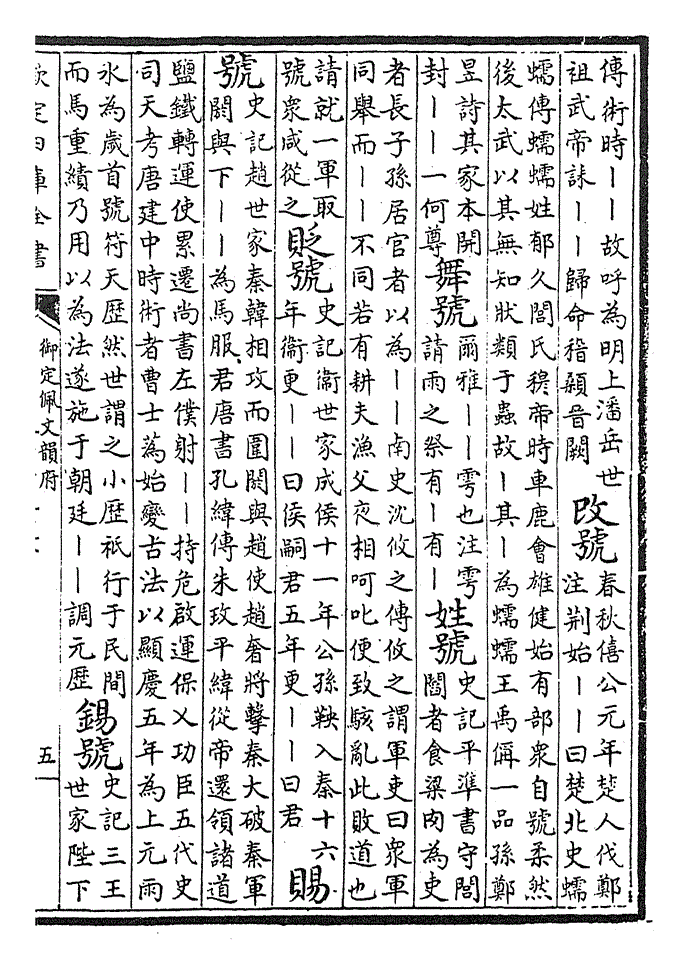 傳術時丨丨故呼為明上潘岳世
祖武帝誄丨丨歸命稽顙音闕
改號
春秋僖公元年楚人伐鄭
注荆始丨丨曰楚北史蠕
蠕傳蠕蠕姓郁久閭氏穆帝時車鹿會雄健始有部衆自號柔然
後太武以其無知狀類于蟲故丨其丨為蠕蠕王禹偁一品孫鄭
昱詩其家本開
封丨丨一何尊
舞號
爾雅丨丨雩也注雩
請雨之祭有丨有丨
姓號
史記平準書守閭
閻者食粱肉為吏
者長子孫居官者以為丨丨南史沈攸之傳攸之謂軍吏曰衆軍
同舉而丨丨不同若有耕夫漁父夜相呵叱便致駭亂此敗道也
請就一軍取
號衆咸從之
貶號
史記衞世家成侯十一年公孫鞅入秦十六
年衞更丨丨曰侯嗣君五年更丨丨曰君
賜
號
史記趙世家秦韓相攻而圍閼與趙使趙奢將擊秦大破秦軍
閼與下丨丨為馬服君唐書孔緯傳朱玫平緯從帝還領諸道
鹽鐵轉運使累遷尚書左僕射丨丨持危啟運保乂功臣五代史
司天考唐建中時術者曹士為始變古法以顯慶五年為上元雨
水為歲首號符天歷然世謂之小歷祇行于民間
而馬重績乃用以為法遂施于朝廷丨丨調元歷
錫號
史記三王
世家陛下
欽定四庫全書
御定佩文韻府
五